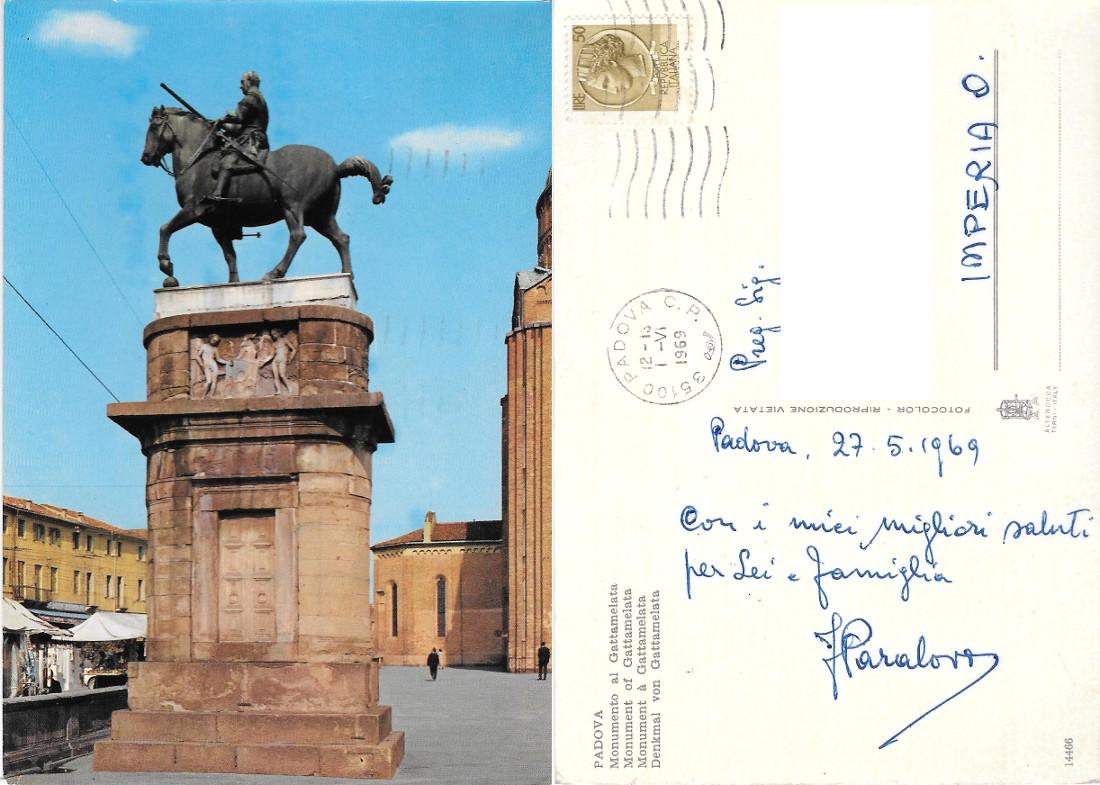 LIRE 50
POSTE
REPVBBLICA
ITALIANA
35100 PADOVA C.P.
12-13
1-VI
1969
Preg. Sig.
IMPERIA O.
FOTOCOLOR - RIPRODUZIONE VIETATA
ALTEROCCA
TERNI - ITALY
Padova, 27.5.1969
Con i miei migliori saluti
per Lei e famiglia
PADOVA
Monumento al Gattamelata
Monument of Gattamelata
Monument à Gattamelata
Denkmal von Gattamelata
14466